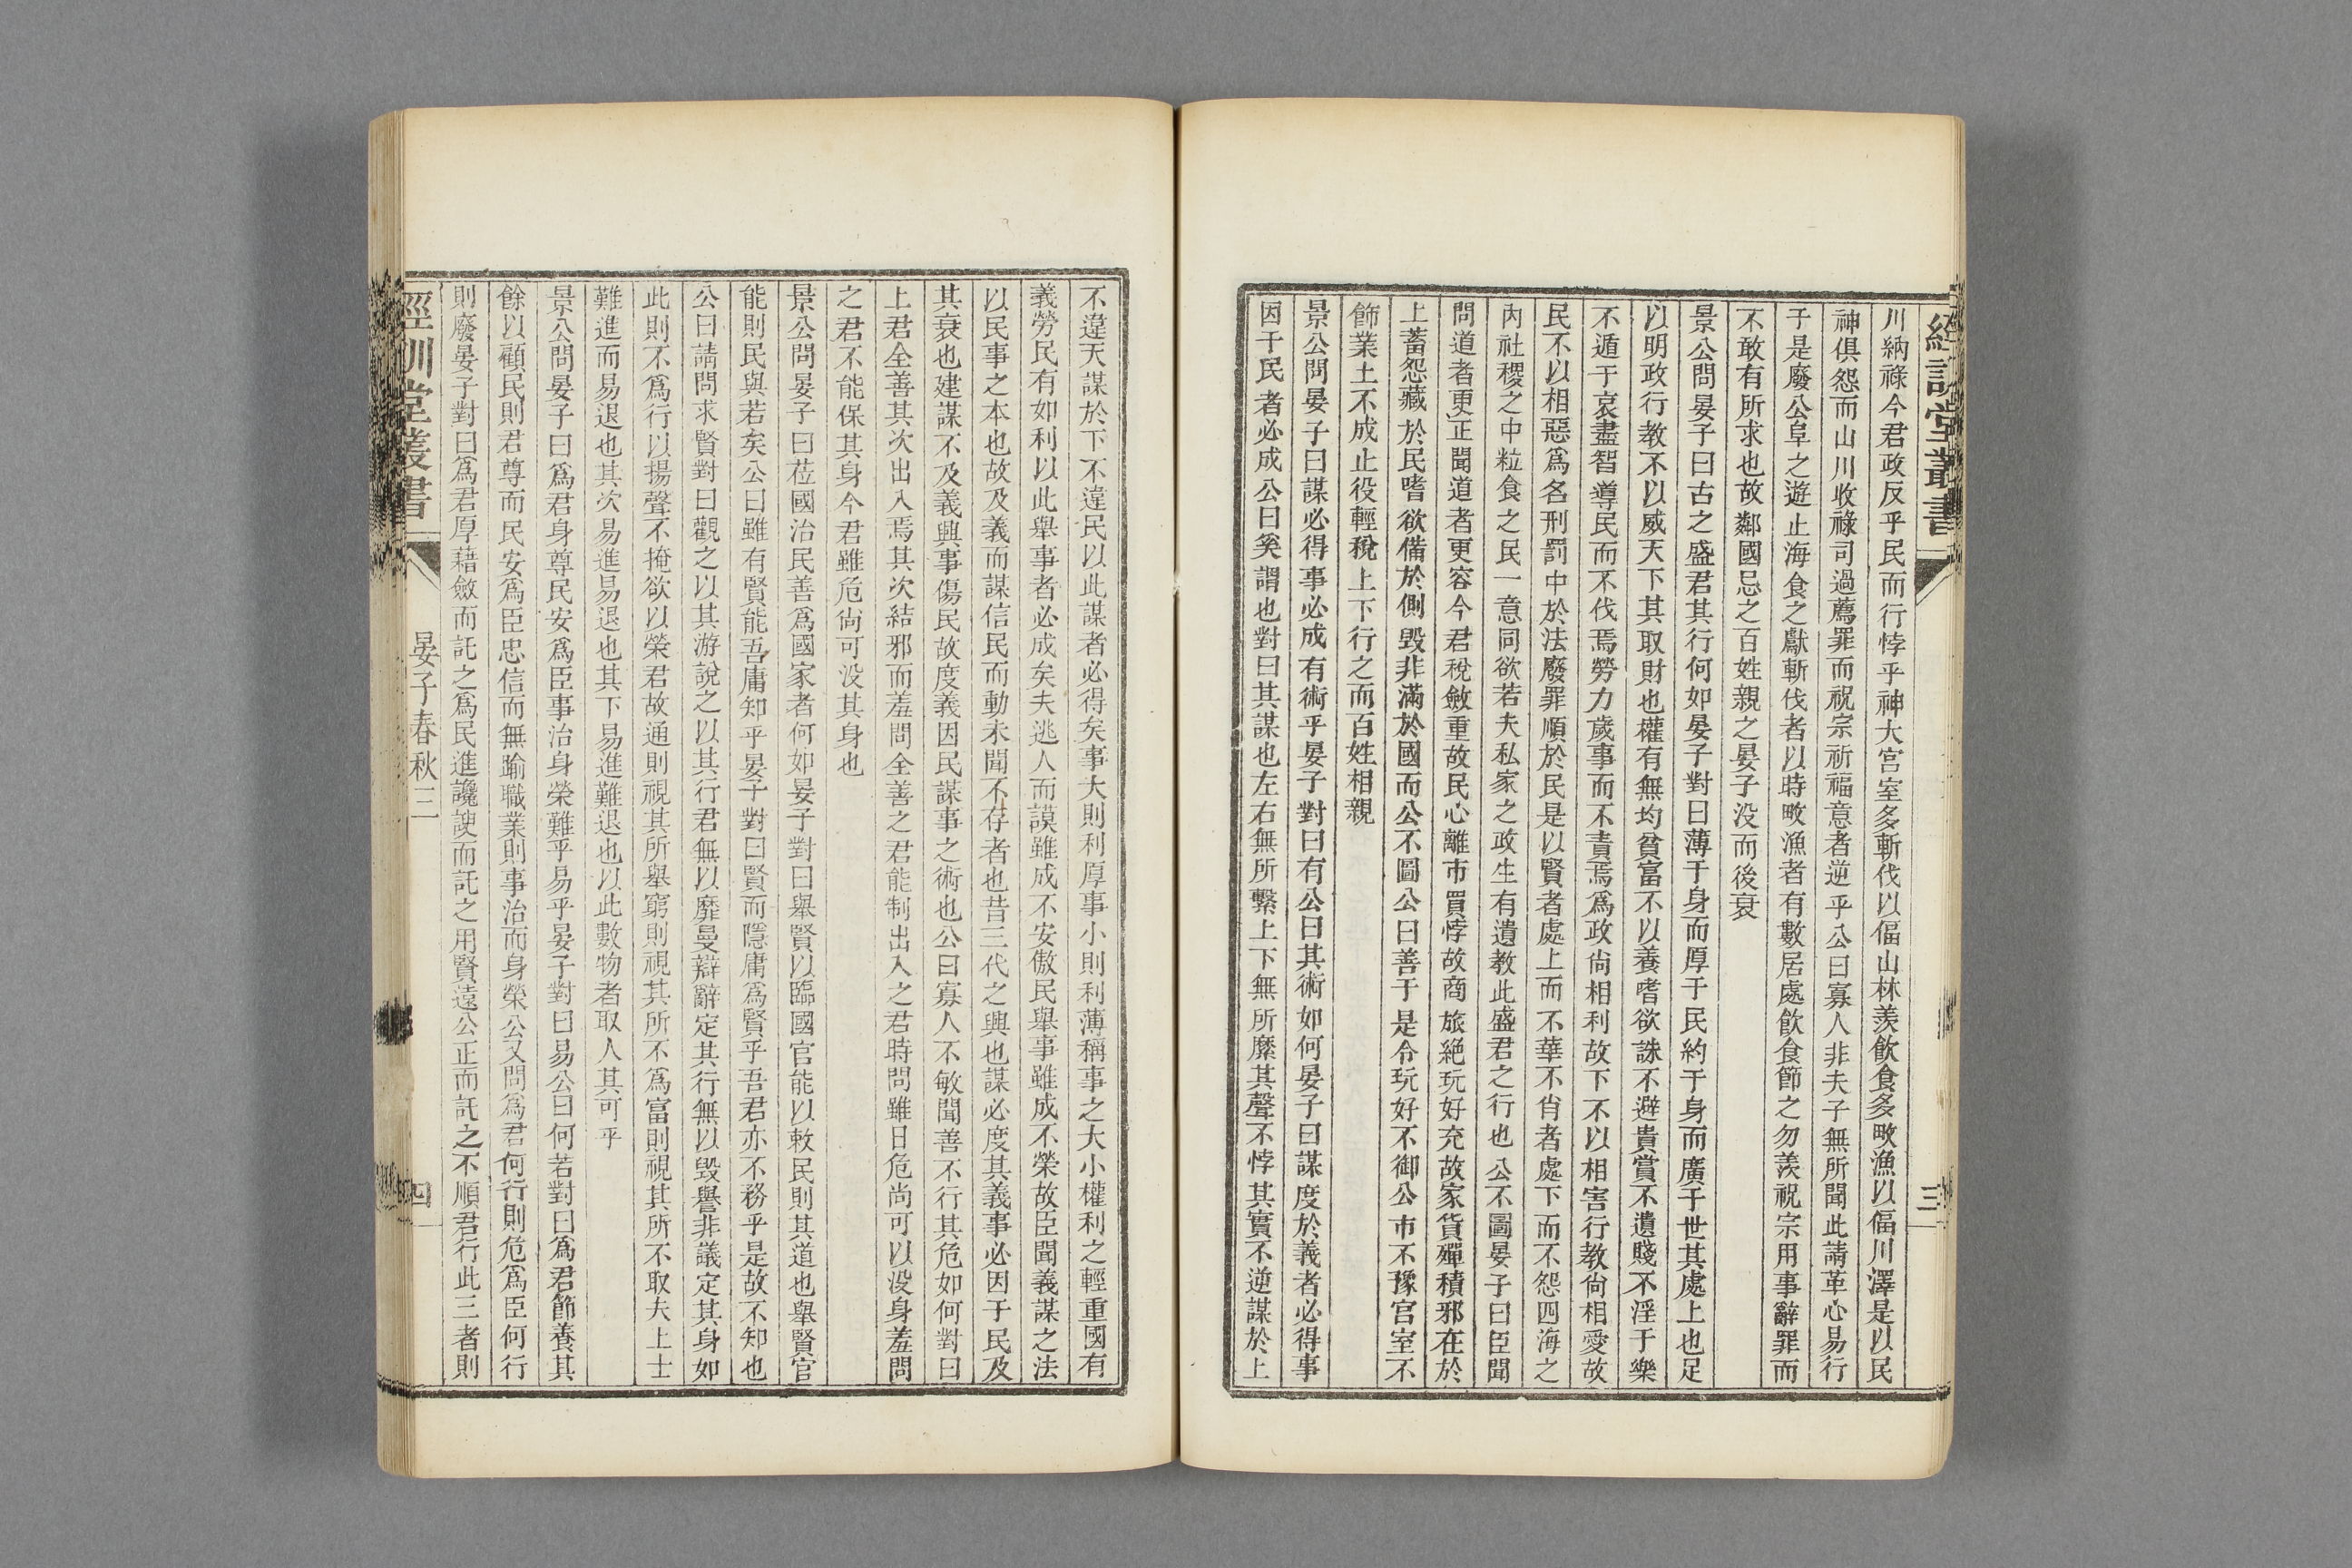 經訓堂叢書
三
川納祿今君政反乎民而行悖乎神大宮室多斬伐以偪山林羨飲食多畋漁以偪川澤是以民
神俱怨而山川收祿司過薦罪而祝宗祈福意者逆乎公曰寡人非夫子無所聞此請革心易行
于是廢公阜之遊止海食之獻斬伐者以時畋漁者有數居處飲食節之勿羨祝宗用事辭罪而
不敢有所求也故鄰國忌之百姓親之晏子沒而後衰
景公問晏子曰古之盛君其行何如晏子對曰薄于身而厚于民約于身而廣于世其處上也足
以明政行教不以威天下其取財也權有無均貧富不以養嗜欲誅不避貴賞不遺賤不淫于樂
不遁于哀盡智導民而不伐焉勞力歲事而不責焉爲政尙相利故下不以相害行教尙相愛故
民不以相惡爲名刑罰中於法廢罪順於民是以賢者處上而不華不肖者處下而不怨四海之
內社稷之中粒食之民一意同欲若夫私家之政生有遺教此盛君之行也公不圖晏子曰臣聞
問道者更正聞道者更容今君稅斂重故民心離市買悖故商旅絕玩好充故家貨殫積邪在於
上蓄怨藏於民嗜欲備於側毀非滿於國而公不圖公曰善于是令玩好不御公市不豫宮室不
飾業土不成止役輕稅上下行之而百姓相親
景公問晏子曰謀必得事必成有術乎晏子對曰有公曰其術如何晏子曰謀度於義者必得事
因于民者必成公曰奚謂也對曰其謀也左右無所繫上下無所縻其聲不悖其實不逆謀於上
不違天謀於下不違民以此謀者必得矣事大則利厚事小則利薄稱事之大小權利之輕重國有
義勞民有如利以此舉事者必成矣夫逃人而謨雖成不安傲民舉事雖成不榮故臣聞義謀之法
以民事之本也故及義而謀信民而動未聞不存者也昔三代之興也謀必度其義事必因于民及
其衰也建謀不及義興事傷民故度義因民謀事之術也公曰寡人不敏聞善不行其危如何對曰
上君全善其次出入焉其次結邪而羞問全善之君能制出入之君時問雖日危尚可以沒身羞問
之君不能保其身今君雖危尙可沒其身也
景公問晏子曰莅國治民善爲國家者何如晏子對曰舉賢以臨國官能以敕民則其道也舉賢官
能則民與若矣公曰雖有賢能吾庸知乎晏子對曰賢而隱庸爲賢乎吾君亦不務乎是故不知也
公曰請問求賢對曰觀之以其游說之以其行君無以靡曼辯辭定其行無以毀譽非議定其身如
此則不爲行以揚聲不掩欲以榮君故通則視其所舉窮則視其所不爲富則視其所不取夫上士
難進而易退也其次易進易退也其下易進難退也以此數物者取人其可乎
景公問晏子曰爲君身尊民安爲臣事治身榮難乎易乎晏子對曰易公曰何若對曰爲君節養其
餘以顧民則君尊而民安爲臣忠信而無踰職業則事治而身榮公又問爲君何行則危爲臣何行
則廢晏子對曰爲君厚藉斂而託之爲民進讒諛而託之用賢遠公正而託之不順君行此三者則
經訓堂叢書
晏子春秋三
四